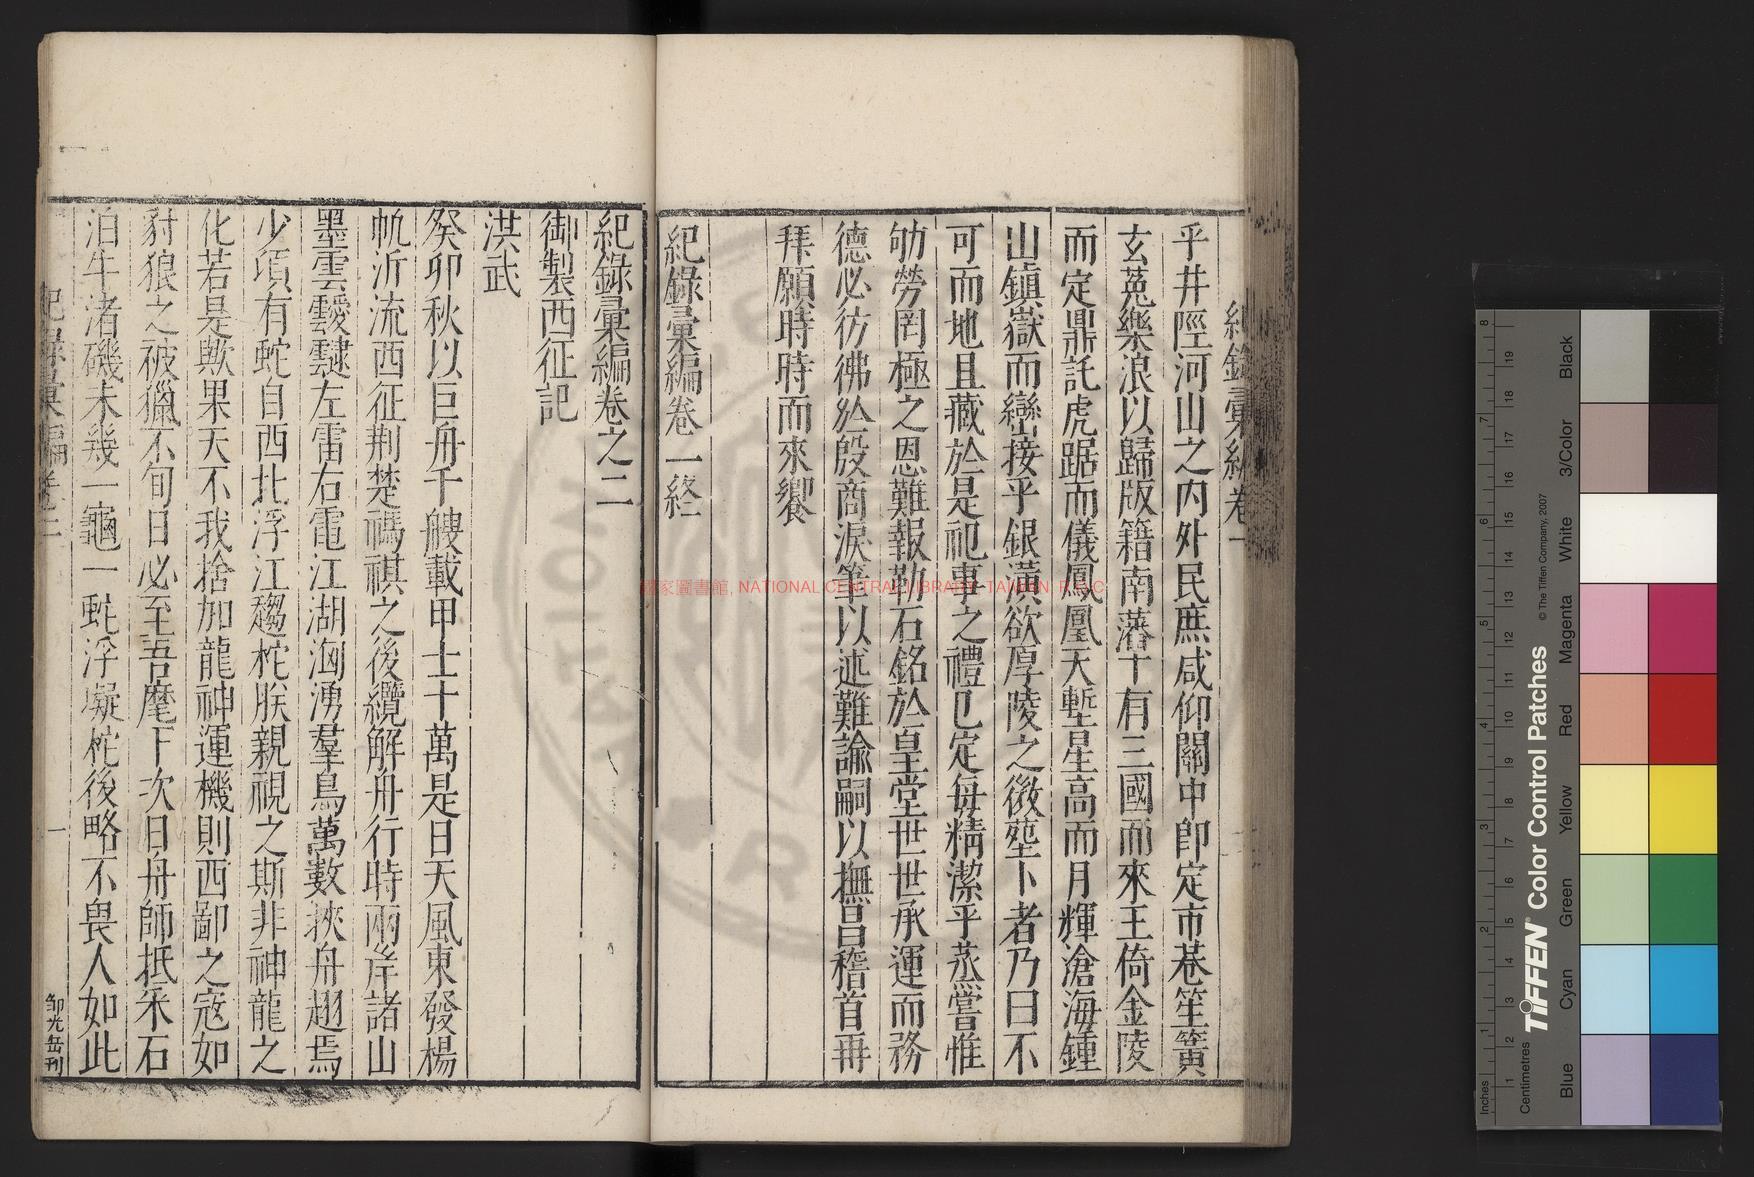 紀錄彙編卷一
乎井陘河山之內外民庶咸仰關中卽定市巷笙簧
玄菟樂浪以歸版籍南藩十有三國而來王倚金陵
而定鼎託虎踞而儀鳳凰天塹星高而月輝滄海鍾
山鎮嶽而巒接乎銀潢欲厚陵之微塋卜者乃曰不
可而地且藏於是祀事之禮已定每精潔乎蒸嘗惟
劬勞罔極之恩難報勒石銘於皇堂世世承運而務
德必彷彿於殷商淚筆以述難諭嗣以撫昌稽首再
拜願時時而來饗
紀錄彙編卷一終
紀錄彙編卷之二
御製西征記
洪武
癸卯秋以巨舟千艘載甲士十萬是日天風東發楊
帆沂流西征荆楚禡祺之後纜解舟行時兩岸諸山
墨雲靉靆左雷右電江湖洶湧羣鳥萬數挾舟趐焉
少頃有蛇自西北浮江趨柁朕親視之斯非神龍之
化若是歟果天不我捨加龍神運機則西鄙之寇如
豺狼之被獵不旬日必至吾麾下次日舟師抵采石
泊牛渚磯未幾一龜一蛇浮凝柁後略不畏人如此
紀錄彙編卷二
一
邹光岳刊
國家圖書館, NATIONAL CENTRAL LIBRARY, TAIWAN, R.O.C
TIFFEN Color Control Patches
© The Tiffen Company, 2007
Inches
Centimetres
Blue
Cyan
Green
Yellow
Red
Magenta
White
3/Color
Black